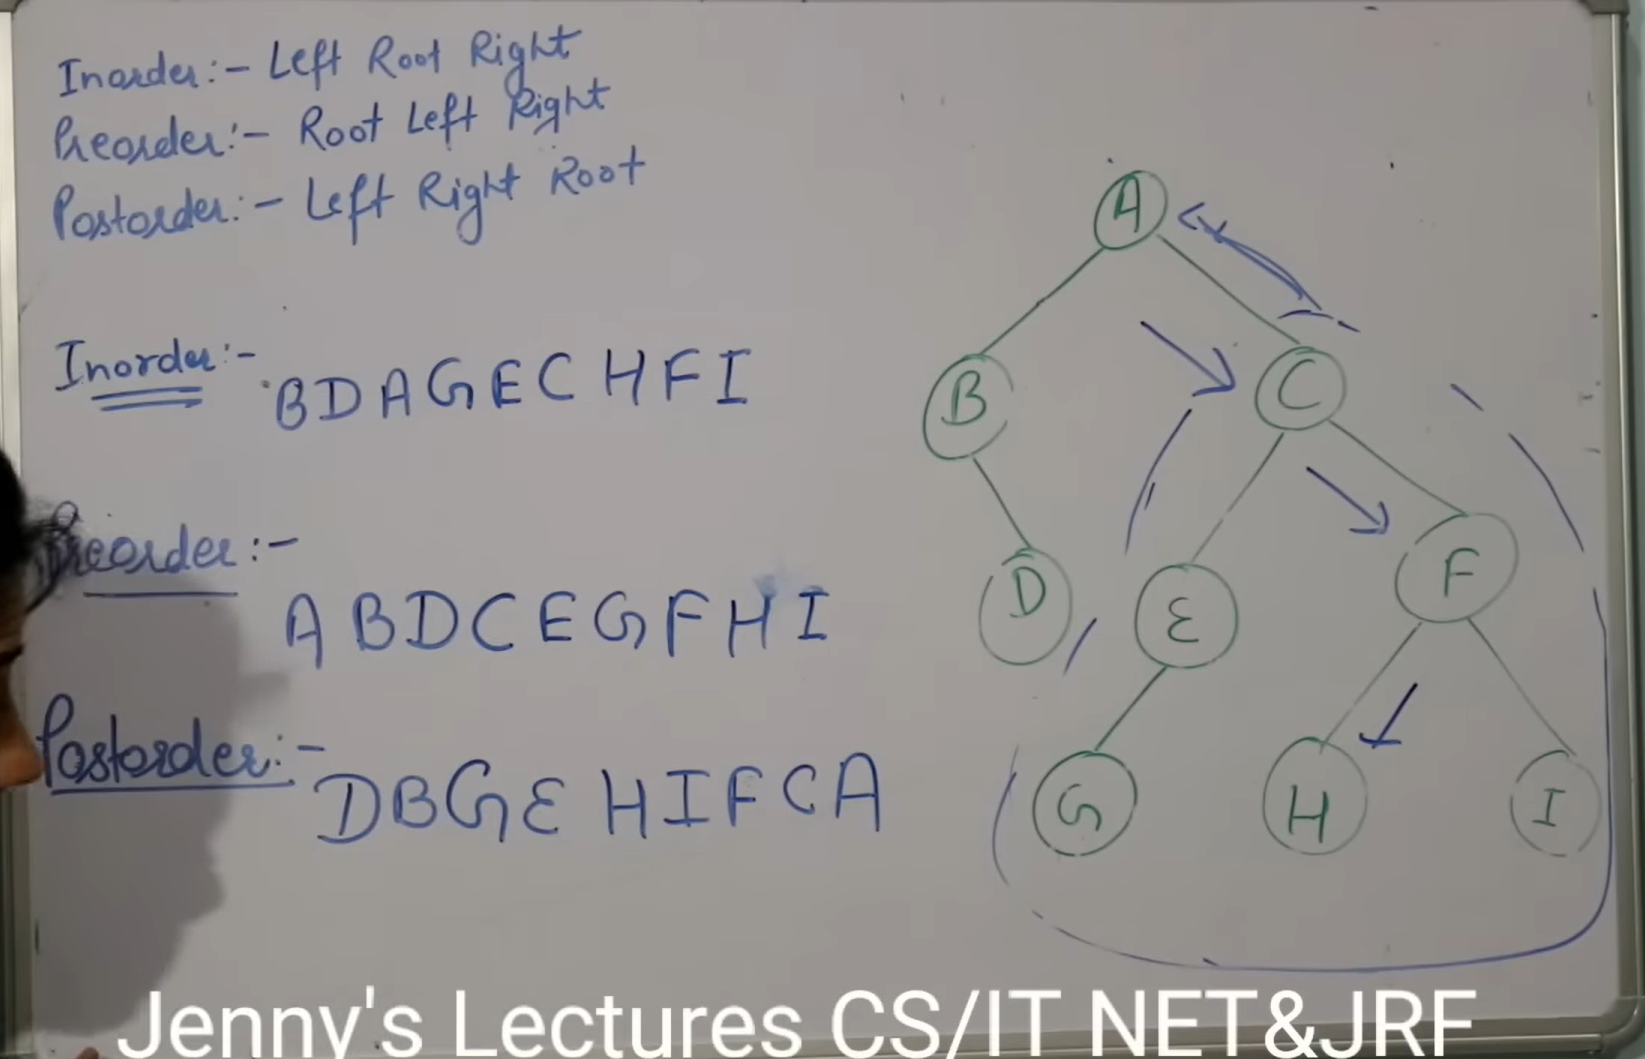 Inorder:- Left Root Right
Preorder:- Root Left Right
Postorder:- Left Right Root
Inorder:- BDAGECHFI
Preorder:-
ABDCEGFHI
Postorder:- DBGEHIFCA
A
B
C
D
E
F
G
H
I
Jenny's Lectures CS/IT NET&JRF